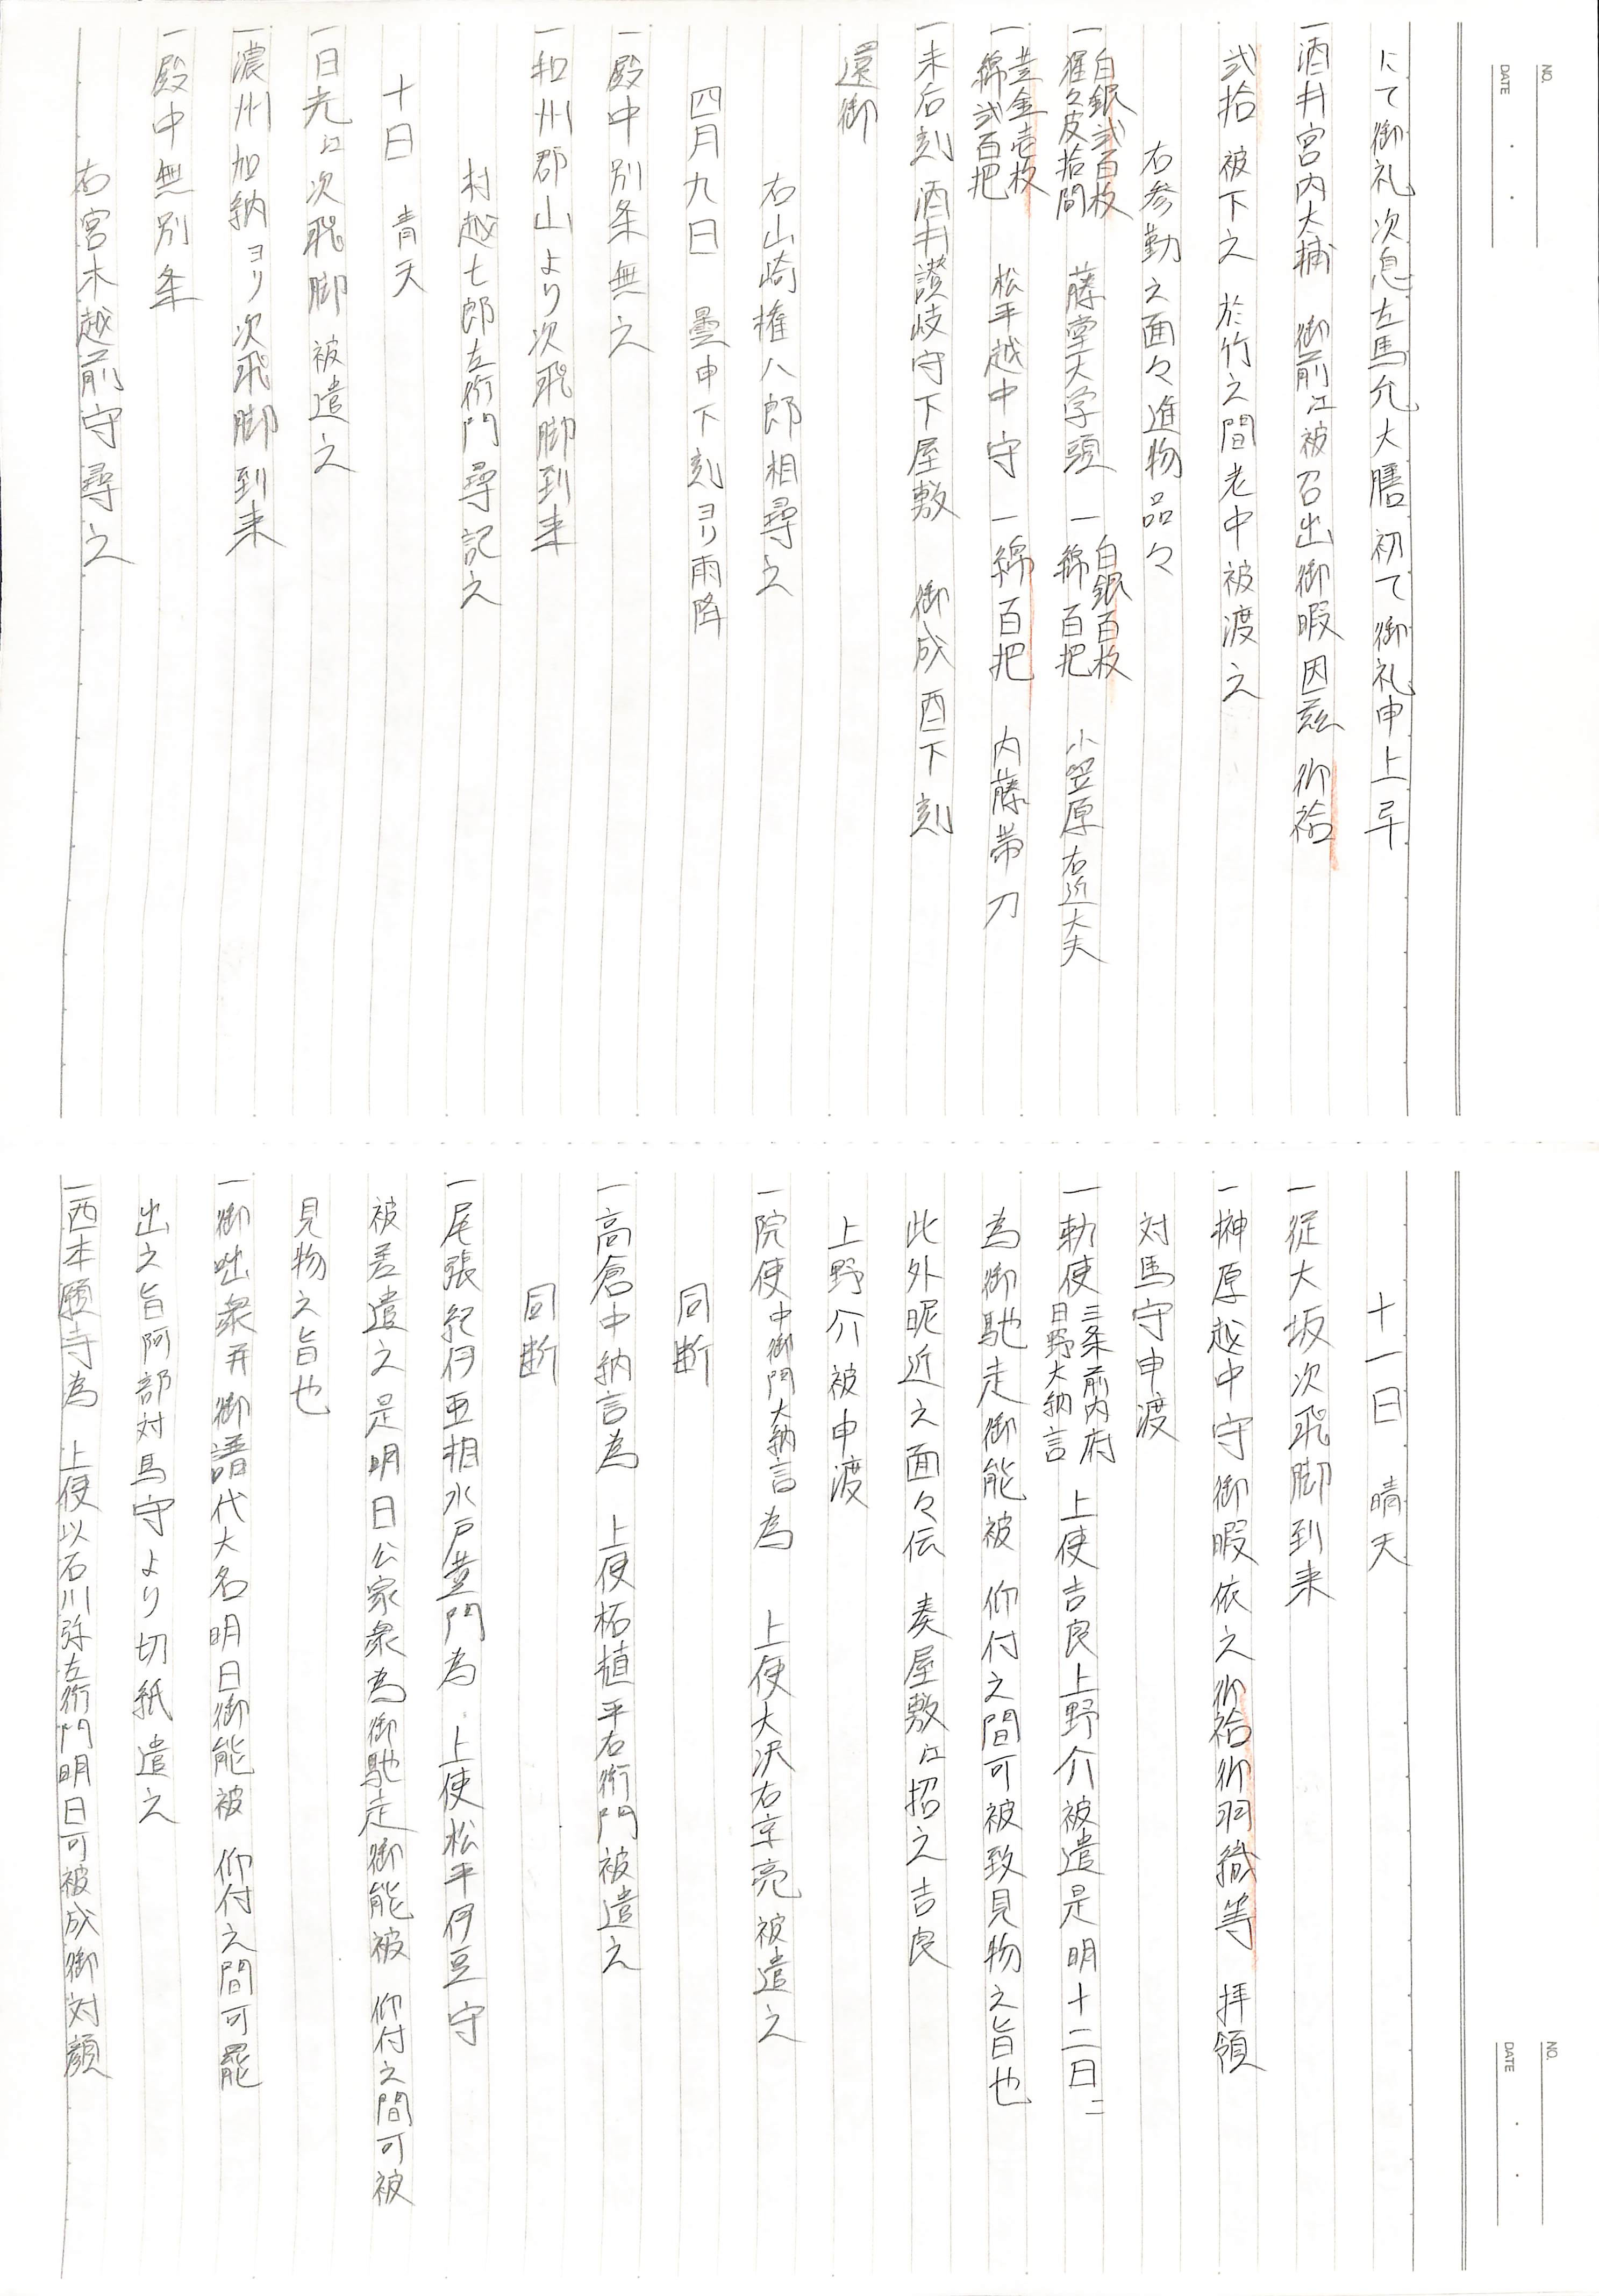 NO.
DATE
にて御礼次息左馬允大膳初て御礼申上畢
一酒井宮内大輔 御前江被召出御暇因茲 御袷
弐拾 被下之 於竹之間老中被渡之
右参勤之面々進物品々
一白銀弐百枚 猩々皮拾間 藤堂大学頭 一白銀百枚 綿百把 小笠原右近大夫
一黄金壱枚 綿弐百把 松平越中守 一綿百把 内藤帯刀
一未后刻 酒井讃岐守下屋敷 御成 酉下刻
還御
右山崎権八郎相尋之
四月九日 曇申下刻ヨリ雨降
一殿中別条無之
一和州郡山より次飛脚到来
村越七郎左衛門尋記之
十日 青天
一日光江次飛脚被遣之
一濃州加納ヨリ次飛脚到来
一殿中無別条
右宮木越前守尋之
NO.
DATE
十一日 晴天
一従大坂次飛脚到来
一榊原越中守御暇依之御袷御羽織等 拝領
対馬守申渡
一勅使三条前内府 日野大納言 上使吉良上野介被遣是明十二日ニ
為御馳走御能被 仰付之間可被致見物之旨也
此外昵近之面々伝 奏屋敷江招之吉良
上野介被申渡
一院使中御門大納言為 上使大沢右京亮被遣之
同断
一高倉中納言為 上使柘植平右衛門被遣之
同断
一尾張紀伊亜相水戸黄門為 上使松平伊豆守
被差遣之是明日公家衆為御馳走御能被 仰付之間可被
見物之旨也
一御咄衆并御譜代大名明日御能被 仰付之間可罷
出之旨阿部対馬守より切紙遣之
一西本願寺為 上使以石川弥左衛門明日可被成御対顔